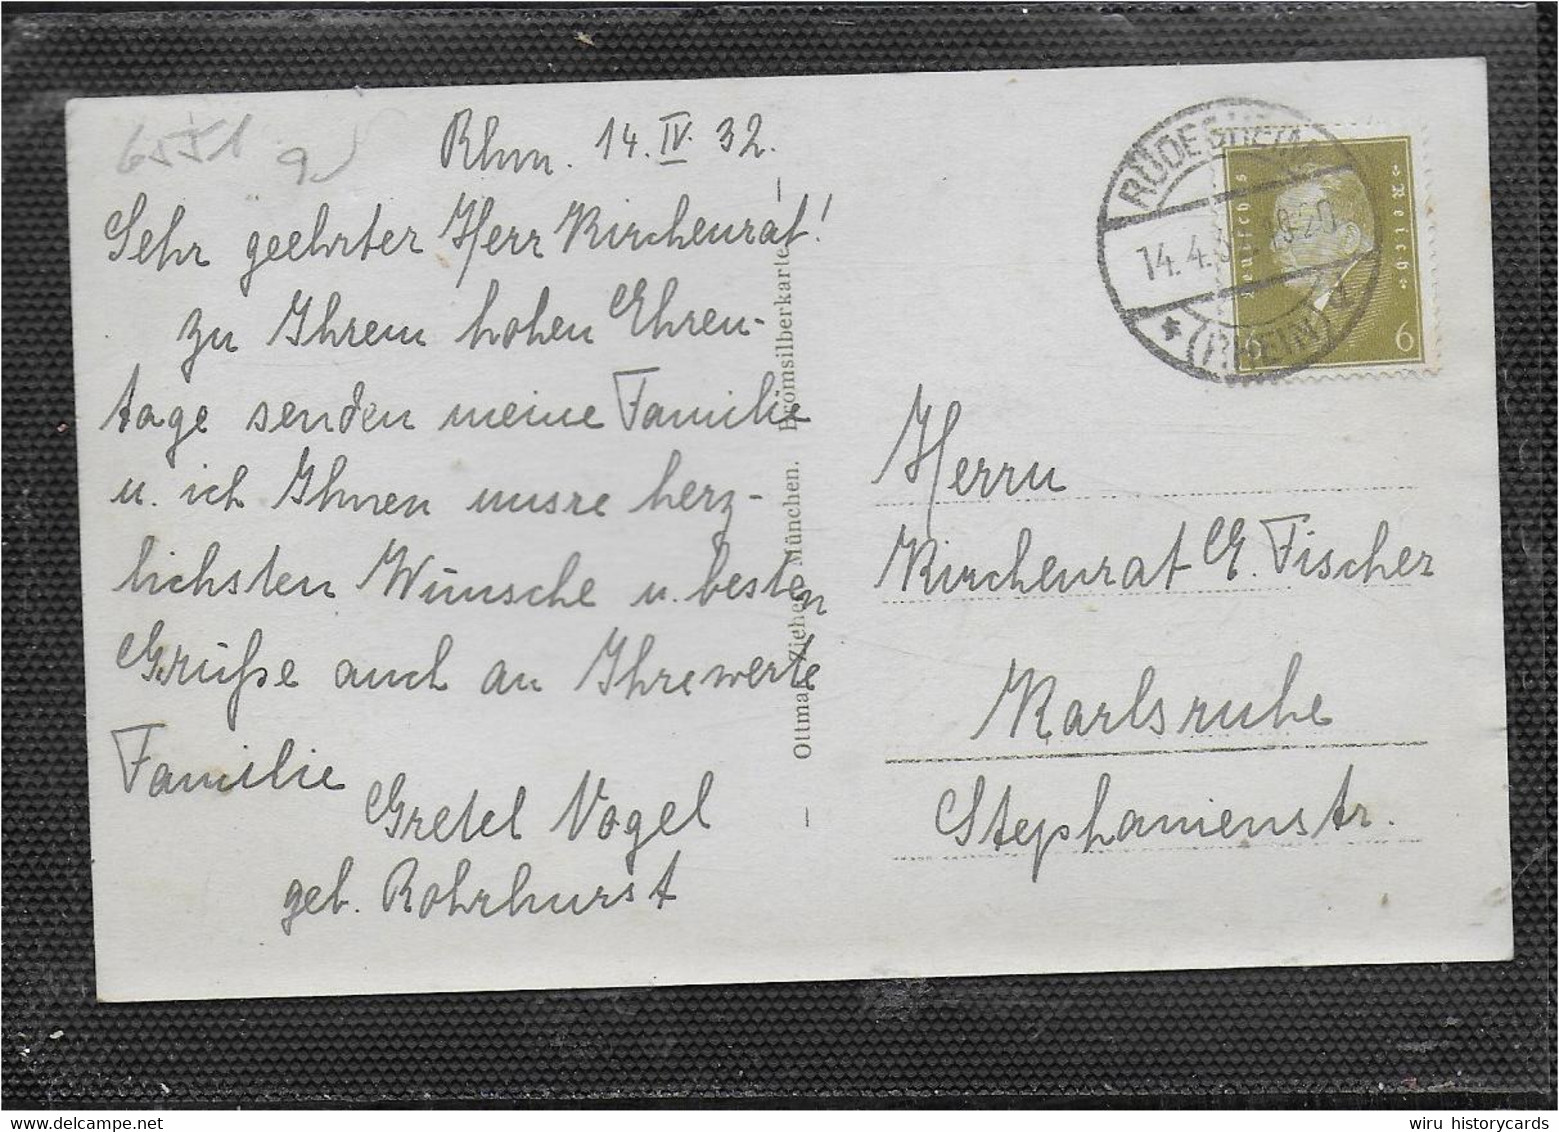 6551
Rhm. 14. IV. 32.
Sehr geehrter Herr Kirchenrat!
zu Ihrem hohen Ehren-
tage senden meine Familie
u. ich Ihnen unsre herz-
lichsten Wünsche u. besten
Grüße auch an Ihre werte
Familie
Gretel Vogel
geb. Rohrhurst
Ottmar Zieher, München. Bromsilberkarte.
RÜDESHEIM
14.4.3 18-20
* (RHEIN) d
Deutsches Reich
6 6
Herrn
Kirchenrat E. Fischer
Karlsruhe
Stephanienstr.
wiru historycards